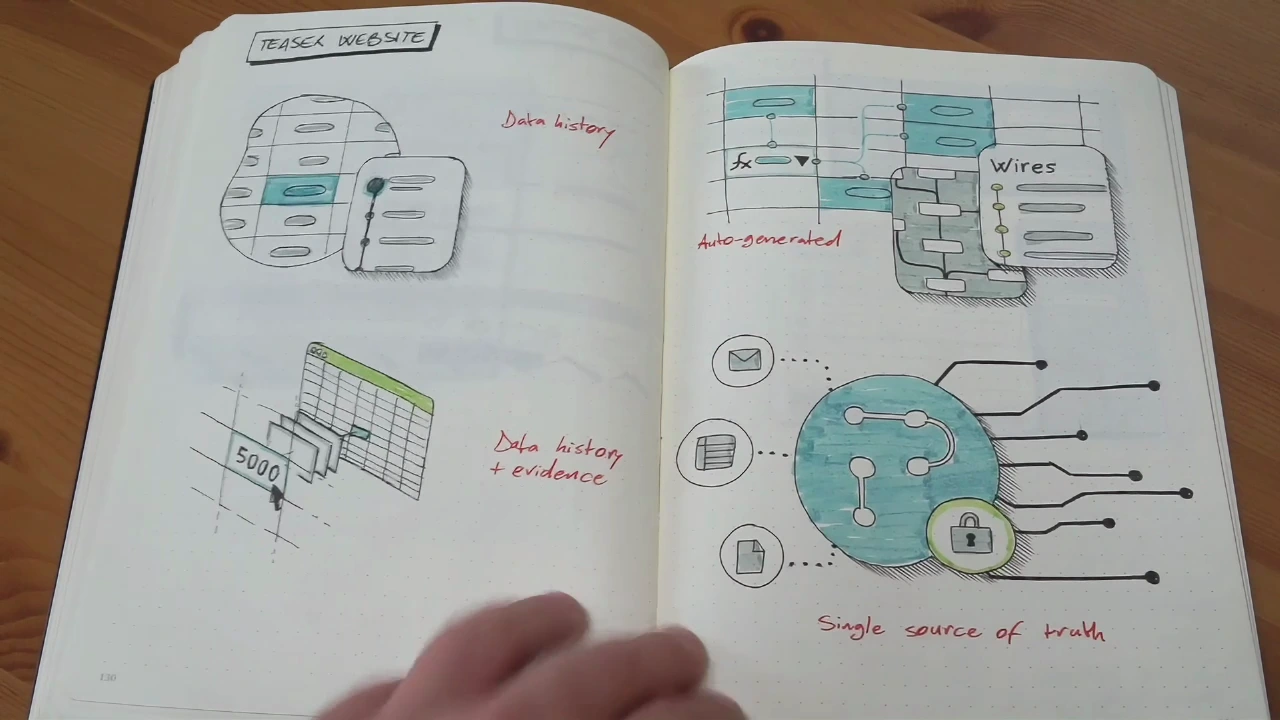 TEASER WEBSITE
Data history
5000
Data history
+ evidence
130
fx
Wires
Auto-generated
Single source of truth